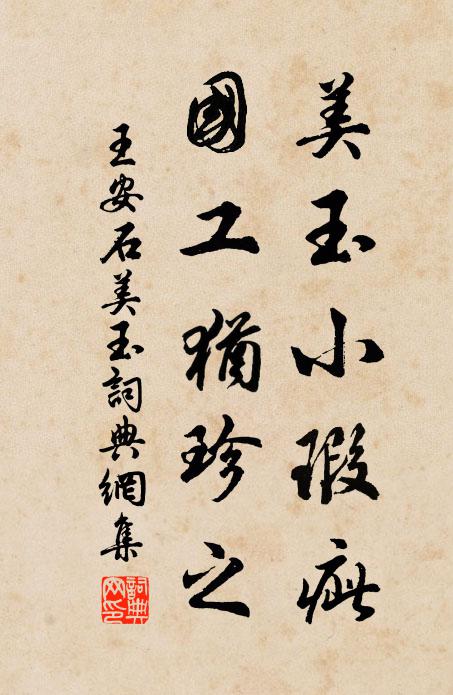 美玉小瑕疵
國工猶珍之
王安石美玉詞典網集
詞典网印